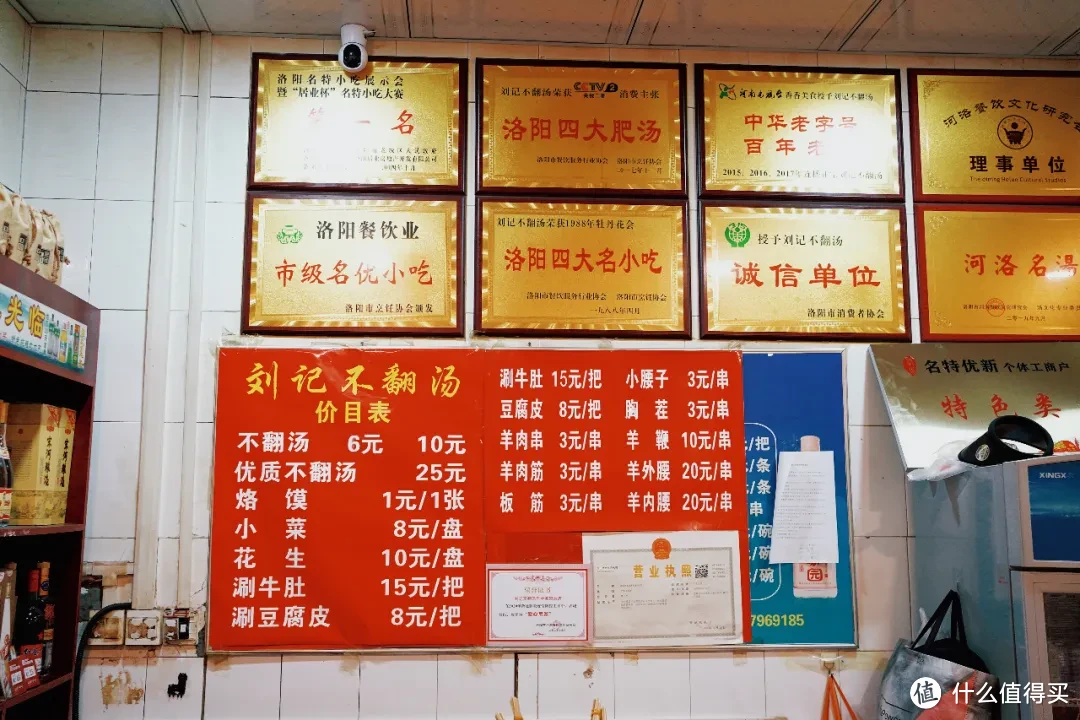 洛阳名特小吃展示会
暨“居业杯”名特小吃大赛
第一名
刘记不翻汤荣获 CCTV 2 消费主张
洛阳四大肥汤
洛阳市餐饮服务行业协会 洛阳市烹饪协会
香香美食授予刘记不翻汤
中华老字号
百年老
2015、2016、2017年
河洛餐饮文化研究会
理事单位
洛阳餐饮业
市级名优小吃
洛阳市烹饪协会颁发
刘记不翻汤荣获1988年牡丹花会
洛阳四大名小吃
洛阳市餐饮服务行业协会 洛阳市烹饪协会
一九八八年四月
授予刘记不翻汤
诚信单位
洛阳市消费者协会
河洛名湯
光临
刘记不翻汤
价目表
不翻汤 6元 10元
优质不翻汤 25元
烙馍 1元/1张
小菜 8元/盘
花生 10元/盘
涮牛肚 15元/把
涮豆腐皮 8元/把
涮牛肚 15元/把 小腰子 3元/串
豆腐皮 8元/把 胸茬 3元/串
羊肉串 3元/串 羊鞭 10元/串
羊肉筋 3元/串 羊外腰 20元/串
板筋 3元/串 羊内腰 20元/串
营业执照
/把
/条
/条
串
/碗
/碗
/碗
7969185
名特优新 个体工商户
特色类
XINGX
值 什么值得买